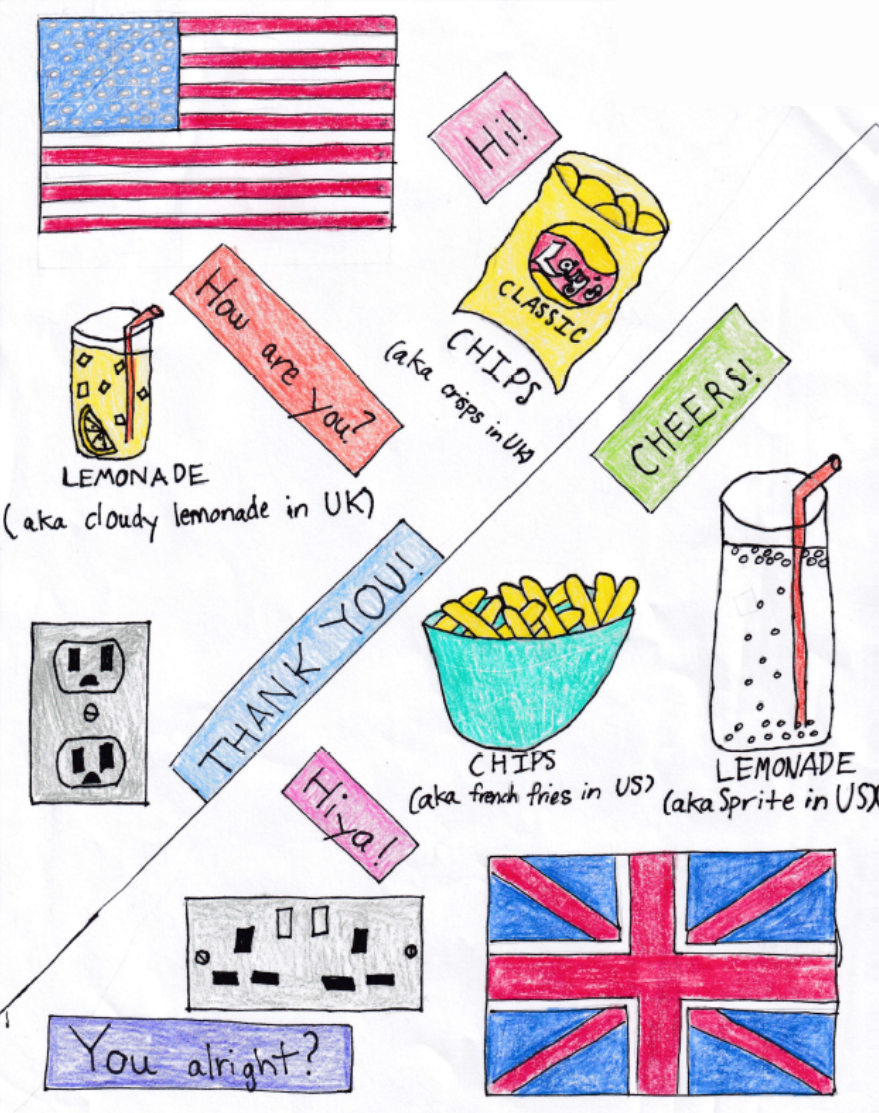 Hi!
Lay's
CLASSIC
CHIPS
(aka crisps in UK)
How
are
you?
LEMONADE
(aka cloudy lemonade in UK)
CHEERS!
THANK YOU!
CHIPS
(aka french fries in US)
LEMONADE
(aka Sprite in US)
Hiya!
You alright?